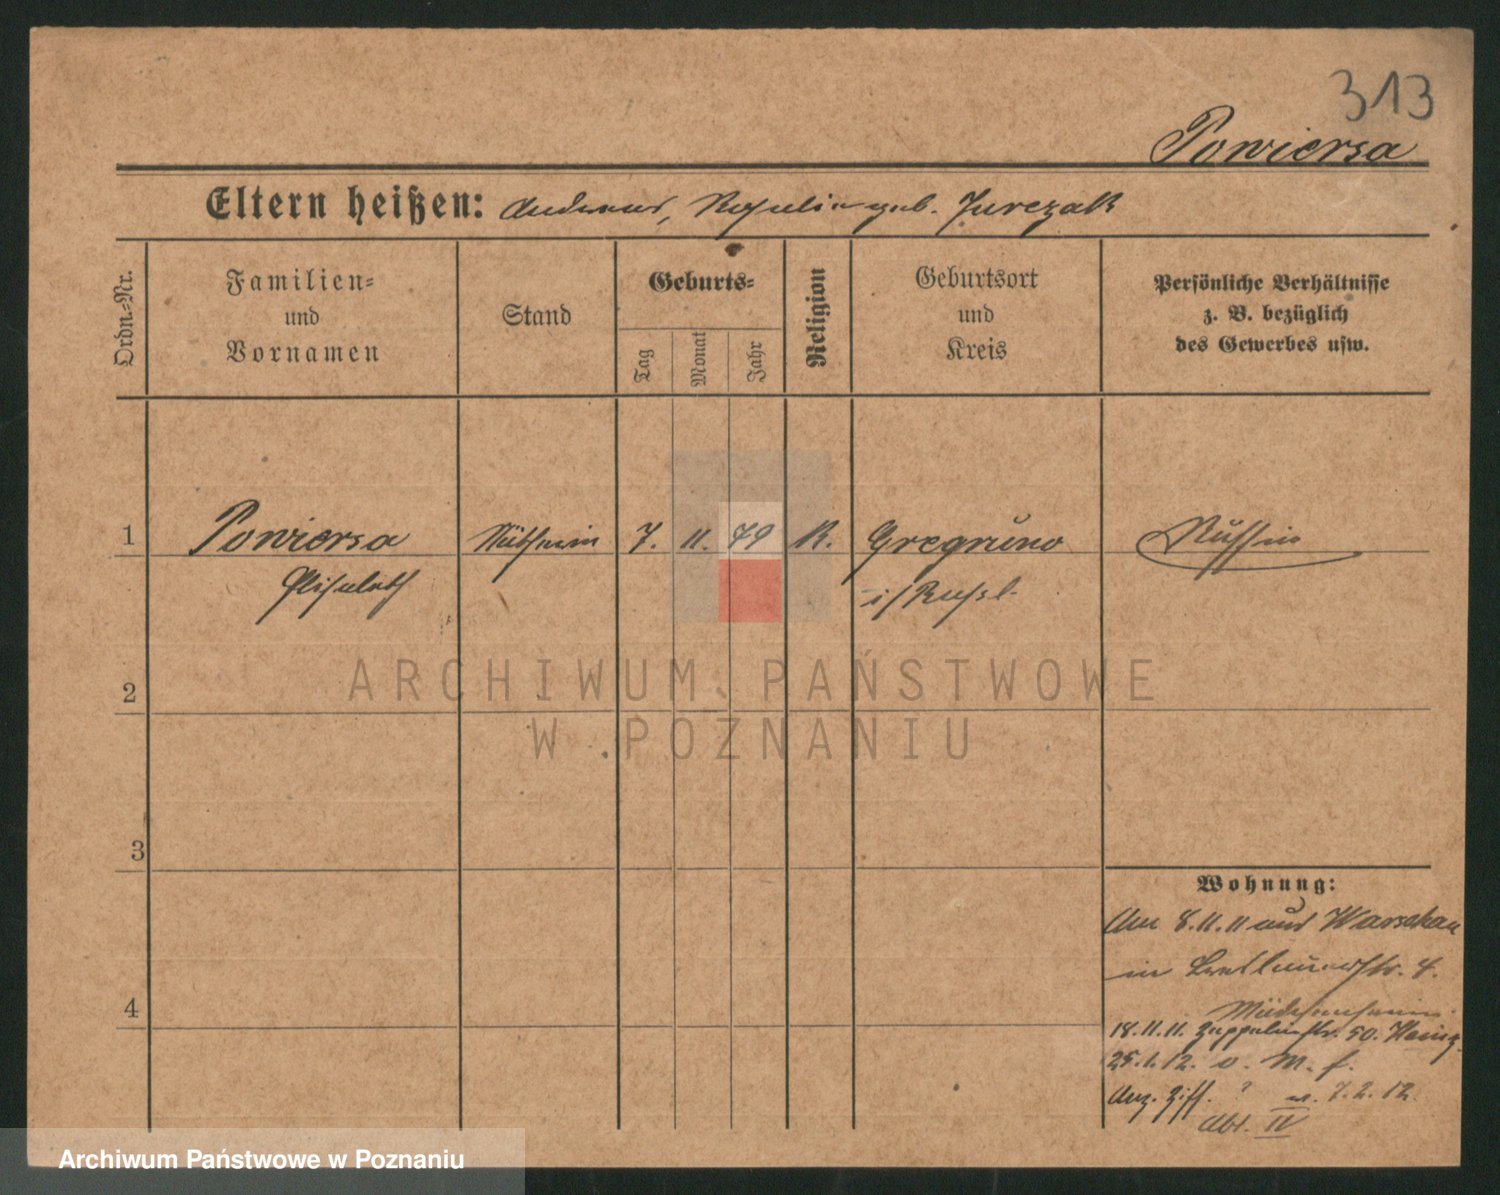 313
Powiersa
Eltern heißen: Andreas, Rosalie geb. Jurczak
Ordn.-Nr.
Familien-
und
Vornamen
Stand
Geburts-
Tag
Monat
Jahr
Religion
Geburtsort
und
Kreis
Persönliche Verhältnisse
z. B. bezüglich
des Gewerbes usw.
1 Powiersa Köchin 7. 11. 79 K.
Elisabeth i/Russl.
2
ARCHIWUM PAŃSTWOWE
W POZNANIU
3
4
Wohnung:
Am 8.11.11 aus Warschau
in 4.
18.11.11. Zeppelinstr. 50.
25.1.12. v. M. f.
Anz. Ziff. ? v. 7.2.12.
Abt. IV
Archiwum Państwowe w Poznaniu